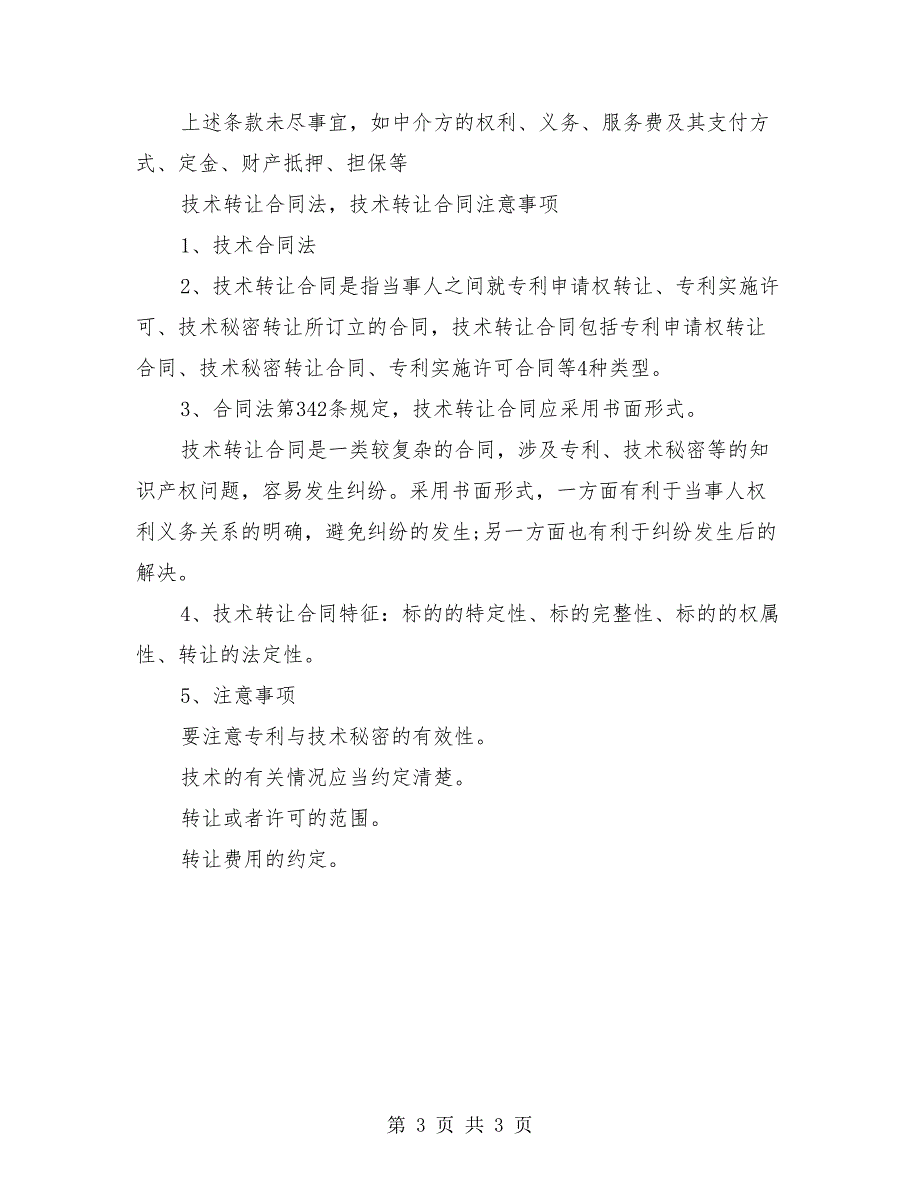 上述条款未尽事宜，如中介方的权利、义务、服务费及其支付方
式、定金、财产抵押、担保等
技术转让合同法，技术转让合同注意事项
1、技术合同法
2、技术转让合同是指当事人之间就专利申请权转让、专利实施许
可、技术秘密转让所订立的合同，技术转让合同包括专利申请权转让
合同、技术秘密转让合同、专利实施许可合同等4种类型。
3、合同法第342条规定，技术转让合同应采用书面形式。
技术转让合同是一类较复杂的合同，涉及专利、技术秘密等的知
识产权问题，容易发生纠纷。采用书面形式，一方面有利于当事人权
利义务关系的明确，避免纠纷的发生;另一方面也有利于纠纷发生后的
解决。
4、技术转让合同特征：标的的特定性、标的完整性、标的的权属
性、转让的法定性。
5、注意事项
要注意专利与技术秘密的有效性。
技术的有关情况应当约定清楚。
转让或者许可的范围。
转让费用的约定。
第 3 页 共 3 页